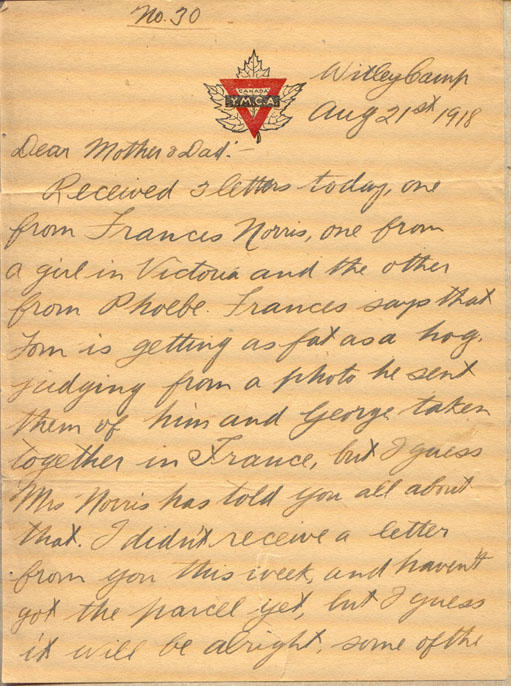 No. 30
CANADA
Y.M.C.A.
Witley Camp
Aug 21st 1918
Dear Mother & Dad:-
Received 3 letters today, one
from Frances Norris, one from
a girl in Victoria and the other
from Phoebe. Frances says that
Tom is getting as fat as a hog.
judging from a photo he sent
them of him and George taken
together in France, but I guess
Mrs Norris has told you all about
that. I didn't receive a letter
from you this week, and haven't
got the parcel yet, but I guess
it will be alright, some of the